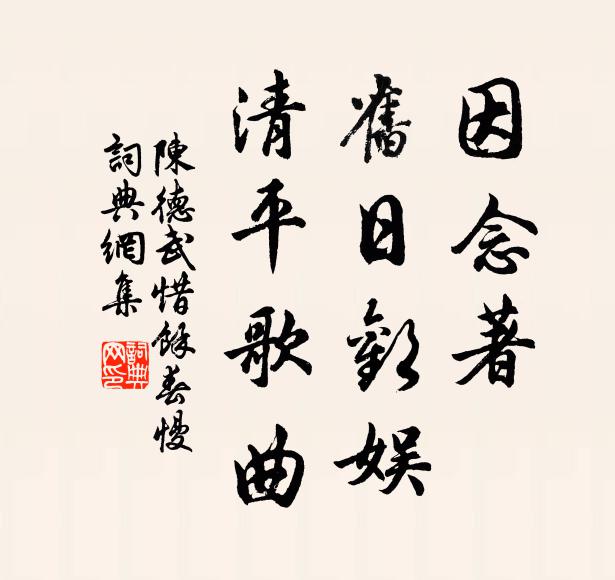 因念著
舊日歡娛
清平歌曲
陳德武惜餘春慢
詞典網集
詞典
网印